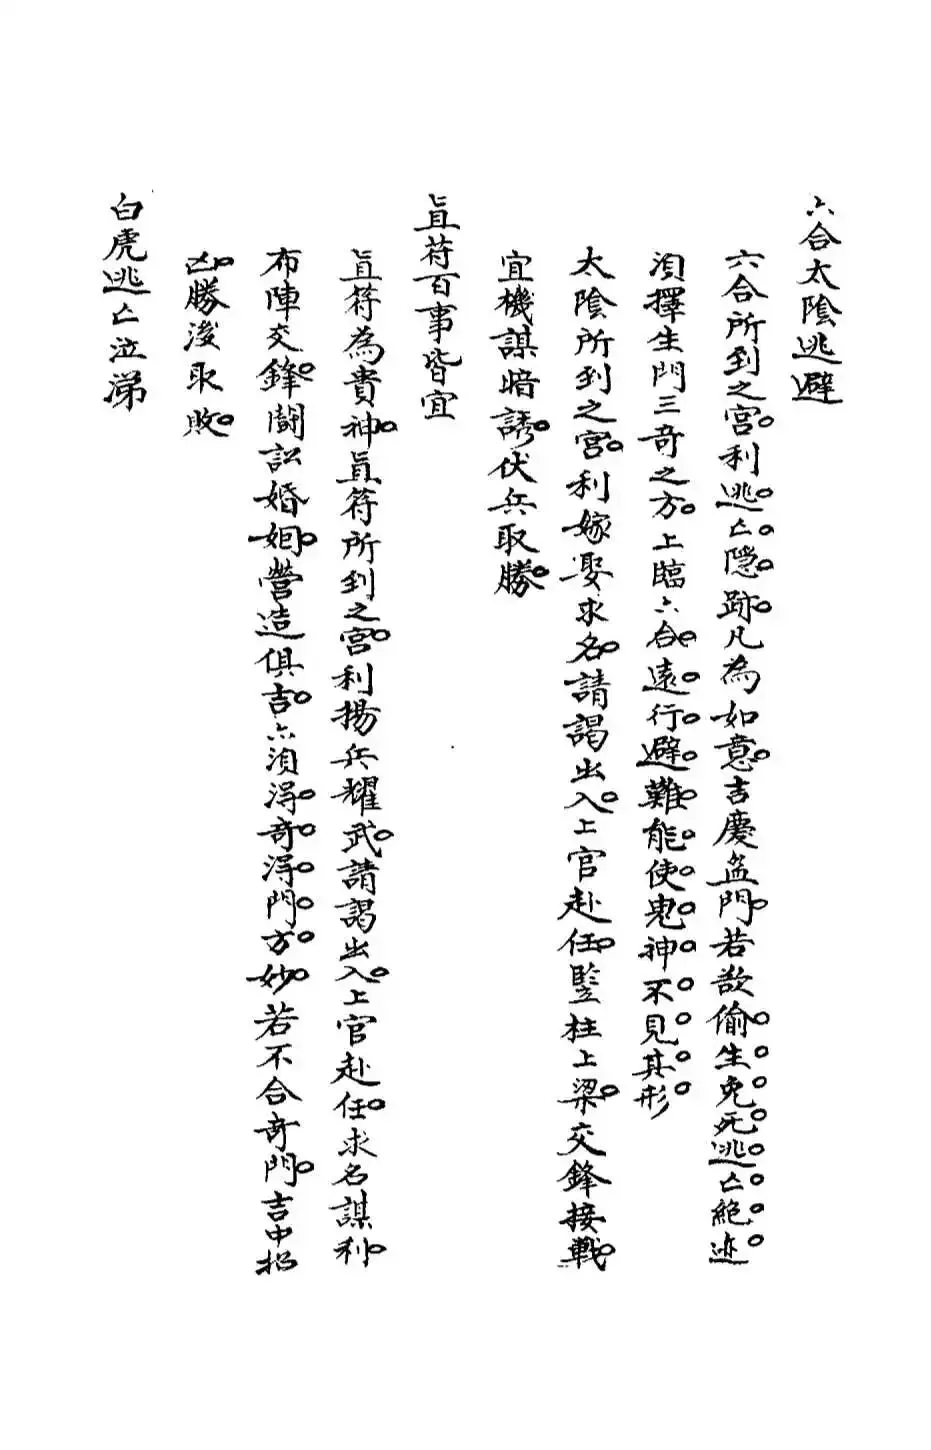 六合太陰逃避
六合所到之宮。利逃。亡。隱。跡。凡為如意。吉慶盈門。若欲偷。生。免。死。逃。亡。絕。迹。
須擇生門三奇之方。上臨六合。遠。行。避。難。能。使。鬼。神。不。見。其。形。
太陰所到之宮。利嫁娶求名。請謁出入。上官赴任。豎柱上梁。交鋒接戰。
宜機謀暗誘。伏兵取勝。
直符百事皆宜
直符為貴神。直符所到之宮。利揚兵耀武。請謁出入。上官赴任。求名謀利。
布陣交鋒。鬪訟婚姻。營造俱吉。亦須得。奇。得。門。方。妙。若不合奇門。吉中招
凶。勝後取敗。
白虎逃亡泣涕